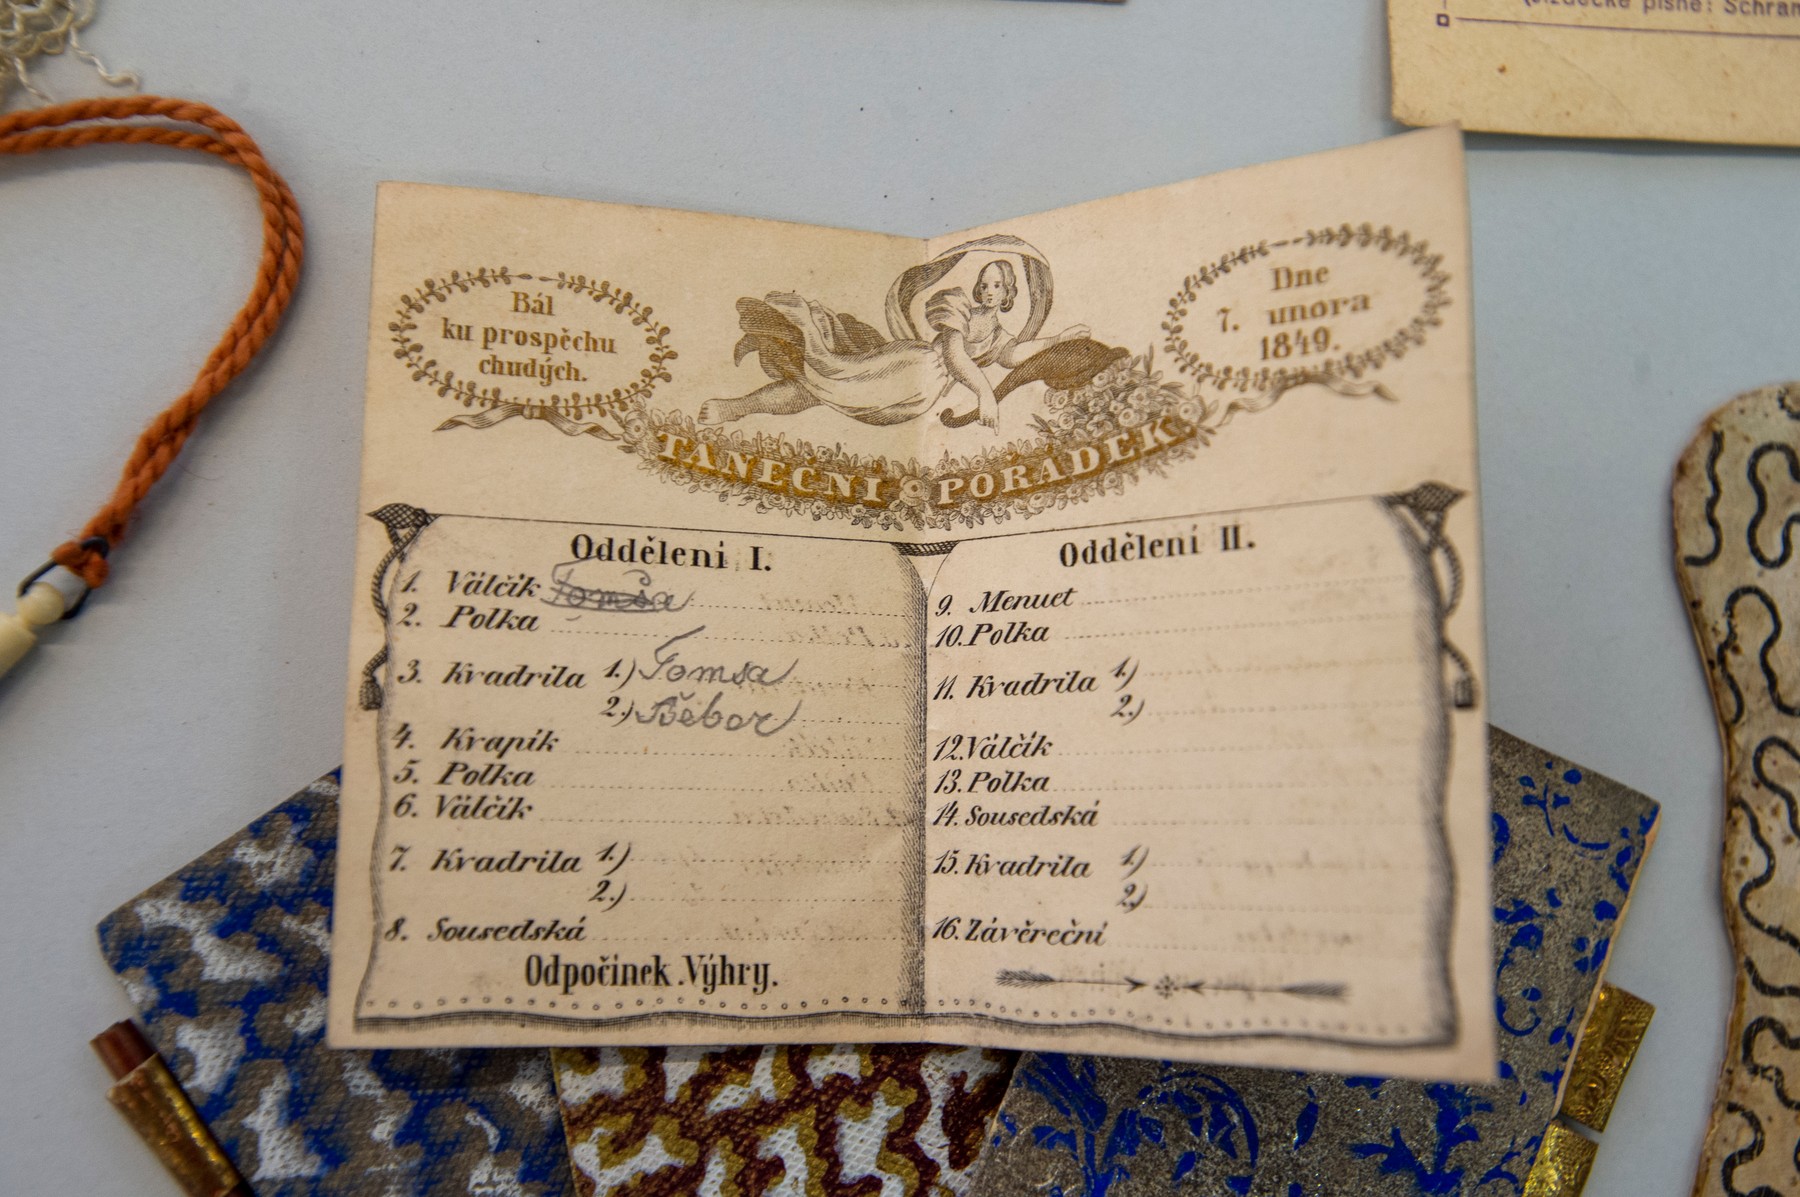 Jízdecké písně: Schram
Bál
ku prospěchu
chudých.
Dne
7. unora
1849.
TANEČNI PORÁDEK.
Odděleni I.
1. Válčik Tomsa
2. Polka
3. Kvadrila 1.) Tomsa
2.) Běbor
4. Krapik
5. Polka
6. Válčik
7. Kvadrila 1.)
2.)
8. Sousedská
Odpočinek. Výhry.
Odděleni II.
9. Menuet
10. Polka
11. Kvadrila 1.)
2.)
12. Válčik
13. Polka
14. Sousedská
15. Kvadrila 1.)
2.)
16. Závěreční